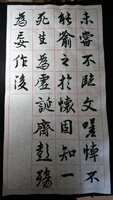 未嘗不臨文嗟悼不
能喻之於懷固知一
死生為虛誕齊彭殤
為妄作後